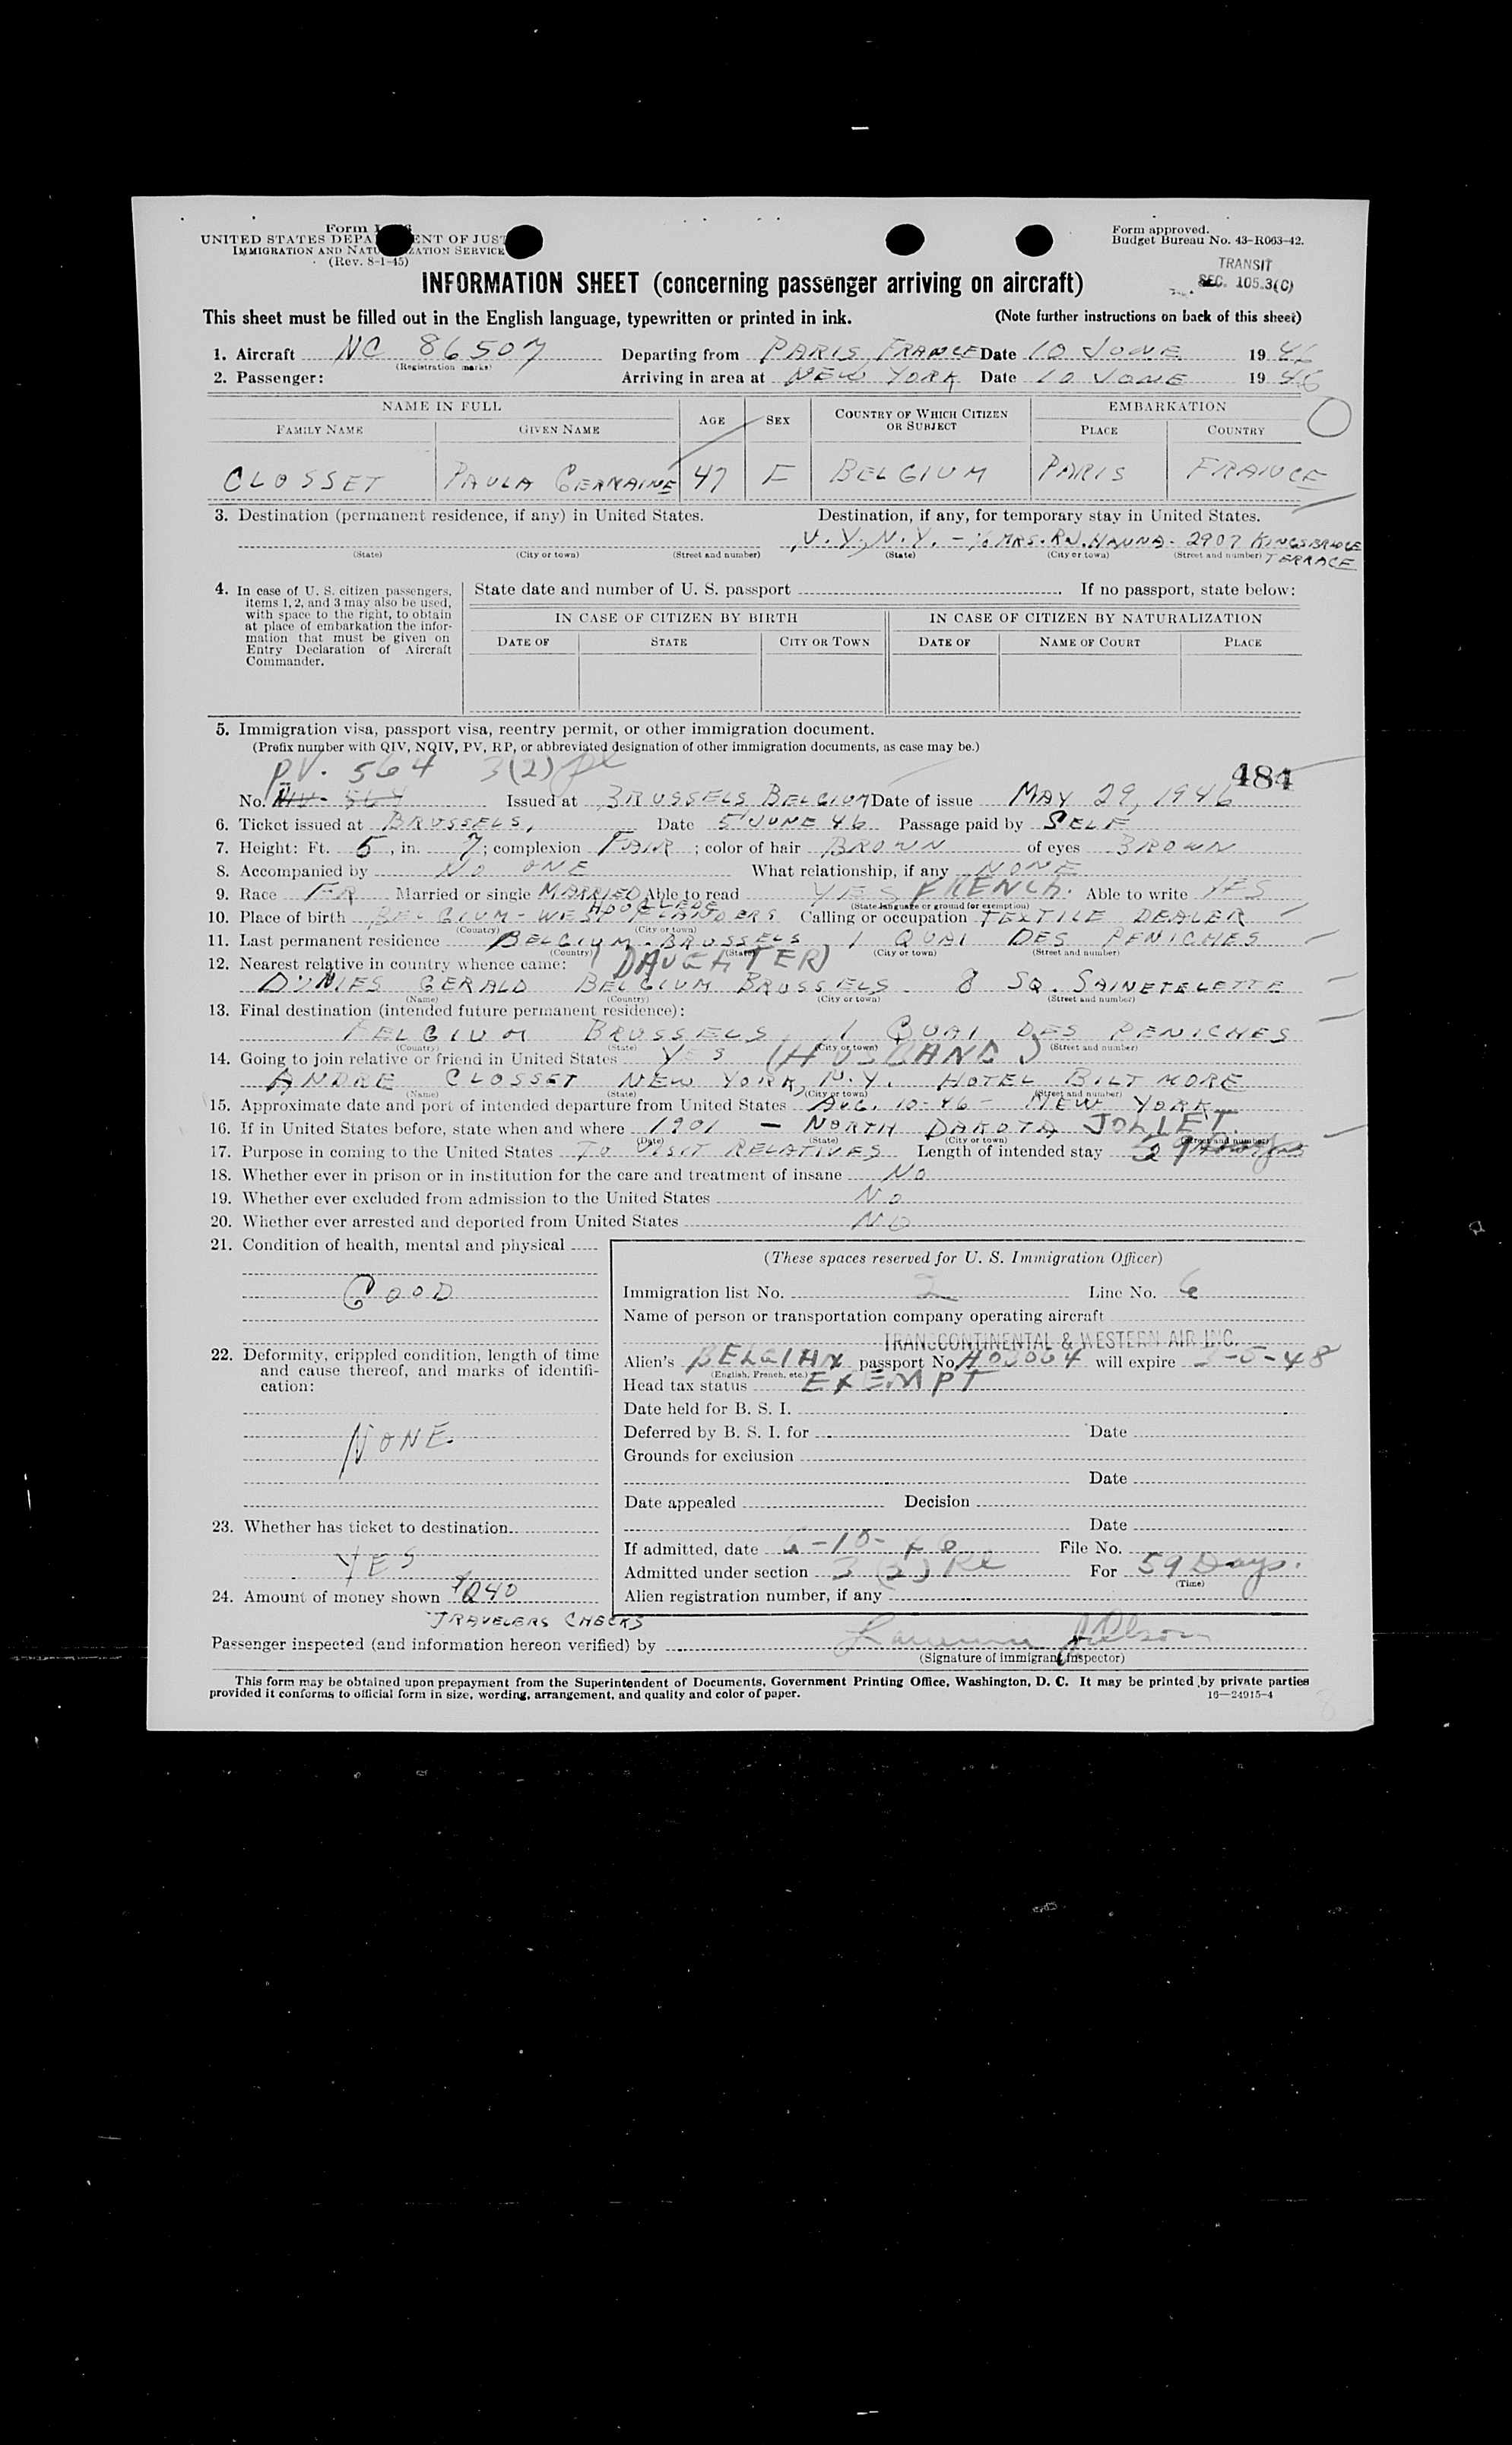 UNITED STATES DEPA ENT OF JUST
IMMIGRATION AND NATU ZATION SERVICE
(Rev. 8-1-45)
Form approved.
Budget Bureau No. 43-R063-42.
TRANSIT
SEC. 105.3(C)
INFORMATION SHEET (concerning passenger arriving on aircraft)
This sheet must be filled out in the English language, typewritten or printed in ink. (Note further instructions on back of this sheet)
1. Aircraft NC 86507 Departing from PARIS, FRANCE Date 10 JUNE 1946
(Registration marks)
2. Passenger: Arriving in area at NEW YORK Date 10 JUNE 1946
NAME IN FULL AGE SEX COUNTRY OF WHICH CITIZEN OR SUBJECT EMBARKATION
FAMILY NAME GIVEN NAME PLACE COUNTRY
CLOSSET PAULA GERMAINE 47 F BELGIUM PARIS FRANCE
3. Destination (permanent residence, if any) in United States. Destination, if any, for temporary stay in United States.
N.Y., N.Y. - % MRS. R.N. HANNA - 2907 KINGSBRIDGE TERRACE
(State) (City or town) (Street and number) (State) (City or town) (Street and number)
4. In case of U. S. citizen passengers, items 1, 2, and 3 may also be used, with space to the right, to obtain at place of embarkation the information that must be given on Entry Declaration of Aircraft Commander.
State date and number of U. S. passport If no passport, state below:
IN CASE OF CITIZEN BY BIRTH IN CASE OF CITIZEN BY NATURALIZATION
DATE OF STATE CITY OR TOWN DATE OF NAME OF COURT PLACE
5. Immigration visa, passport visa, reentry permit, or other immigration document.
(Prefix number with QIV, NQIV, PV, RP, or abbreviated designation of other immigration documents, as case may be.)
PV. 564 3(2)
484
No. NIV. 564 Issued at BRUSSELS, BELGIUM Date of issue MAY 29, 1946
6. Ticket issued at BRUSSELS, Date 5 JUNE 46 Passage paid by SELF
7. Height: Ft. 5, in. 7; complexion FAIR; color of hair BROWN of eyes BROWN
8. Accompanied by NO ONE What relationship, if any NONE
9. Race FR Married or single MARRIED Able to read YES FRENCH. Able to write YES
(State language or ground for exemption)
HOOGLEDE
10. Place of birth BELGIUM - WEST FLANDERS Calling or occupation TEXTILE DEALER
(Country) (City or town)
11. Last permanent residence BELGIUM. BRUSSELS 1 QUAI DES PENICHES
(Country) (State) (City or town) (Street and number)
12. Nearest relative in country whence came: (DAUGHTER)
GERALD BELGIUM BRUSSELS 8 SQ. SAINCTELETTE
(Name) (Country) (City or town) (Street and number)
13. Final destination (intended future permanent residence):
BELGIUM BRUSSELS, 1 QUAI DES PENICHES
(Country) (State) (City or town) (Street and number)
14. Going to join relative or friend in United States YES (HUSBAND)
ANDRE CLOSSET NEW YORK, N.Y. HOTEL BILTMORE
(Name) (State) (City or town) (Street and number)
15. Approximate date and port of intended departure from United States AUG. 10-46 - NEW YORK
16. If in United States before, state when and where 1901 - NORTH DAKOTA JOLIET.
(Date) (State) (City or town) (Street and number)
17. Purpose in coming to the United States TO VISIT RELATIVES Length of intended stay 59
18. Whether ever in prison or in institution for the care and treatment of insane NO
19. Whether ever excluded from admission to the United States NO
20. Whether ever arrested and deported from United States NO
21. Condition of health, mental and physical
GOOD
22. Deformity, crippled condition, length of time and cause thereof, and marks of identification:
NONE.
23. Whether has ticket to destination
YES
24. Amount of money shown
TRAVELERS CHECKS
(These spaces reserved for U. S. Immigration Officer)
Immigration list No. 2 Line No. 6
Name of person or transportation company operating aircraft
TRANSCONTINENTAL & WESTERN AIR INC.
Alien's BELGIAN passport No. A03064 will expire 3-5-48
(English, French, etc.)
Head tax status EXEMPT
Date held for B. S. I.
Deferred by B. S. I. for Date
Grounds for exclusion
Date
Date appealed Decision
Date
If admitted, date File No.
Admitted under section 3(2) For 59 Days.
(Time)
Alien registration number, if any
Passenger inspected (and information hereon verified) by
(Signature of immigrant inspector)
This form may be obtained upon prepayment from the Superintendent of Documents, Government Printing Office, Washington, D. C. It may be printed by private parties
provided it conforms to official form in size, wording, arrangement, and quality and color of paper. 16—24915-4